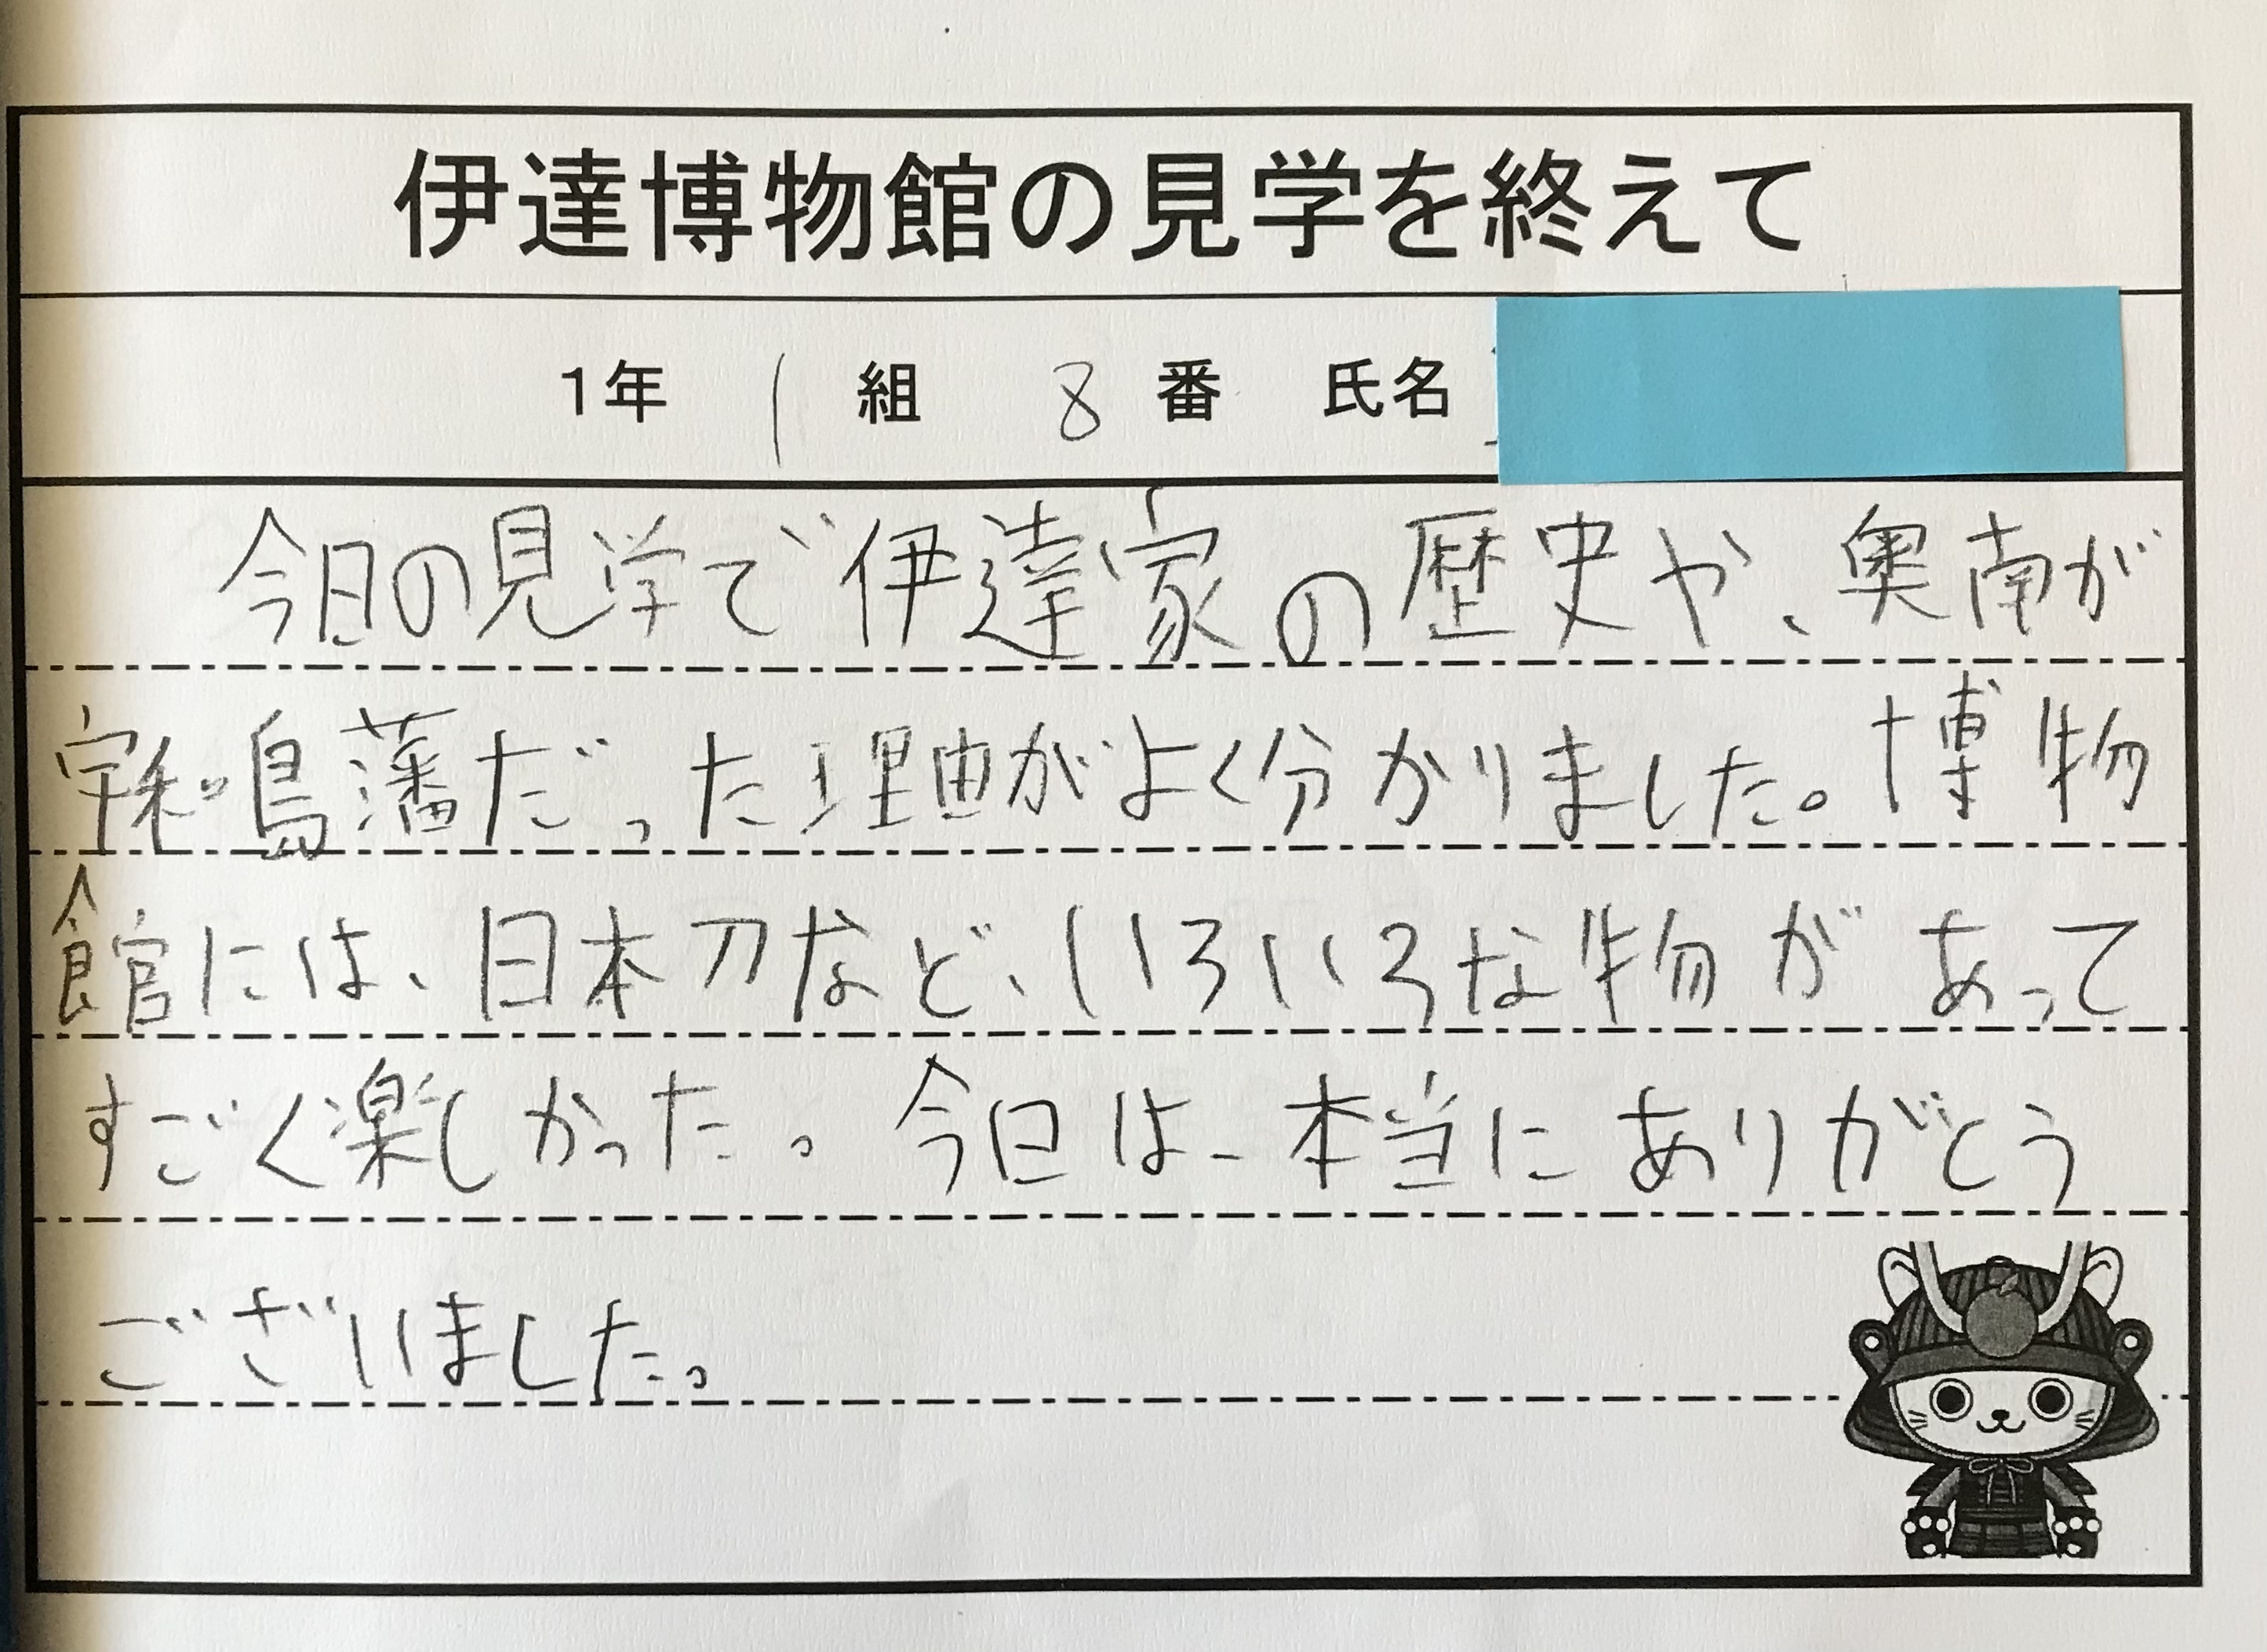 伊達博物館の見学を終えて
1年 1 組 8 番 氏名
今日の見学で伊達家の歴史や、奥南が
宇和島藩だった理由がよく分かりました。博物
館には、日本刀など、いろいろな物があって
すごく楽しかった。今日は、本当にありがとう
ございました。